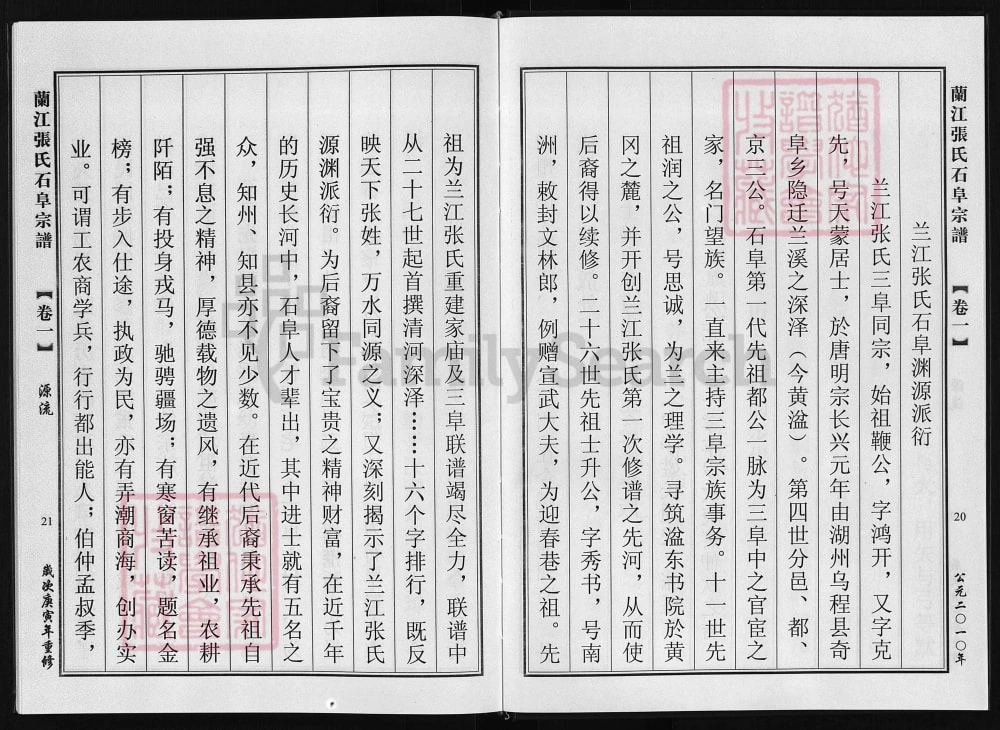 蘭江張氏石阜宗譜
【卷一】
20
公元二〇一〇年
兰江张氏石阜渊源派衍
兰江张氏三阜同宗，始祖鞭公，字鸿开，又字克
先，号天蒙居士，於唐明宗长兴元年由湖州乌程县奇
阜乡隐迁兰溪之深泽（今黄湓）。第四世分邑、都、
京三公。石阜第一代先祖都公一脉为三阜中之官宦之
家，名门望族。一直来主持三阜宗族事务。十一世先
祖润之公，号思诚，为兰之理学。寻筑湓东书院於黄
冈之麓，并开创兰江张氏第一次修谱之先河，从而使
后裔得以续修。二十六世先祖士升公，字秀书，号南
洲，敕封文林郎，例赠宣武大夫，为迎春巷之祖。先
祖为兰江张氏重建家庙及三阜联谱竭尽全力，联谱中
从二十七世起首撰清河深泽……十六个字排行，既反
映天下张姓，万水同源之义；又深刻揭示了兰江张氏
源渊派衍。为后裔留下了宝贵之精神财富，在近千年
的历史长河中，石阜人才辈出，其中进士就有五名之
众，知州、知县亦不见少数。在近代后裔秉承先祖自
强不息之精神，厚德载物之遗风，有继承祖业，农耕
阡陌；有投身戎马，驰骋疆场；有寒窗苦读，题名金
榜；有步入仕途，执政为民，亦有弄潮商海，创办实
业。可谓工农商学兵，行行都出能人；伯仲孟叔季，
蘭江張氏石阜宗譜
【卷一】
源流
21
歲次庚寅年重修
FamilySearch